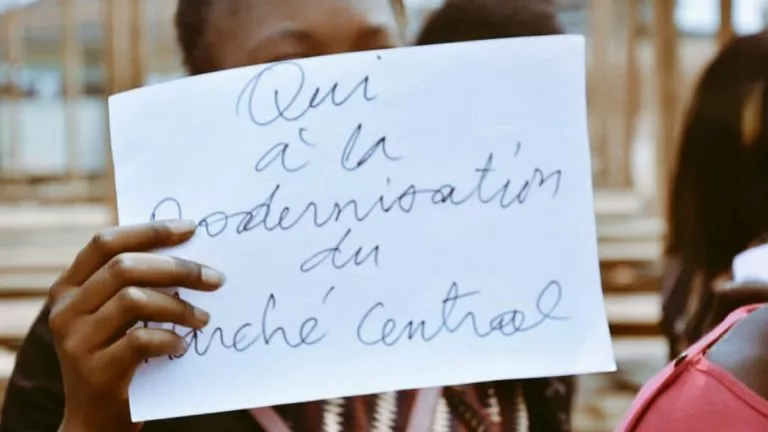 Qui
à la
modernisation
du
Marché Central